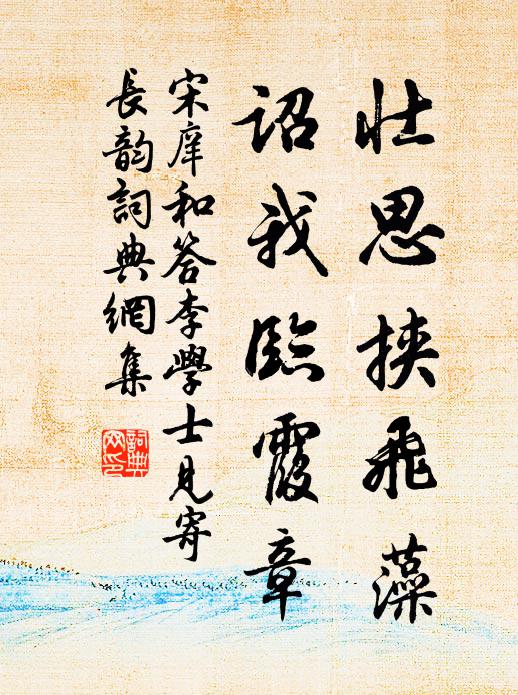 壮思挟飛藻
詔我臨霞章
宋庠和答李學士見寄
長韵詞典網集
詞典網印